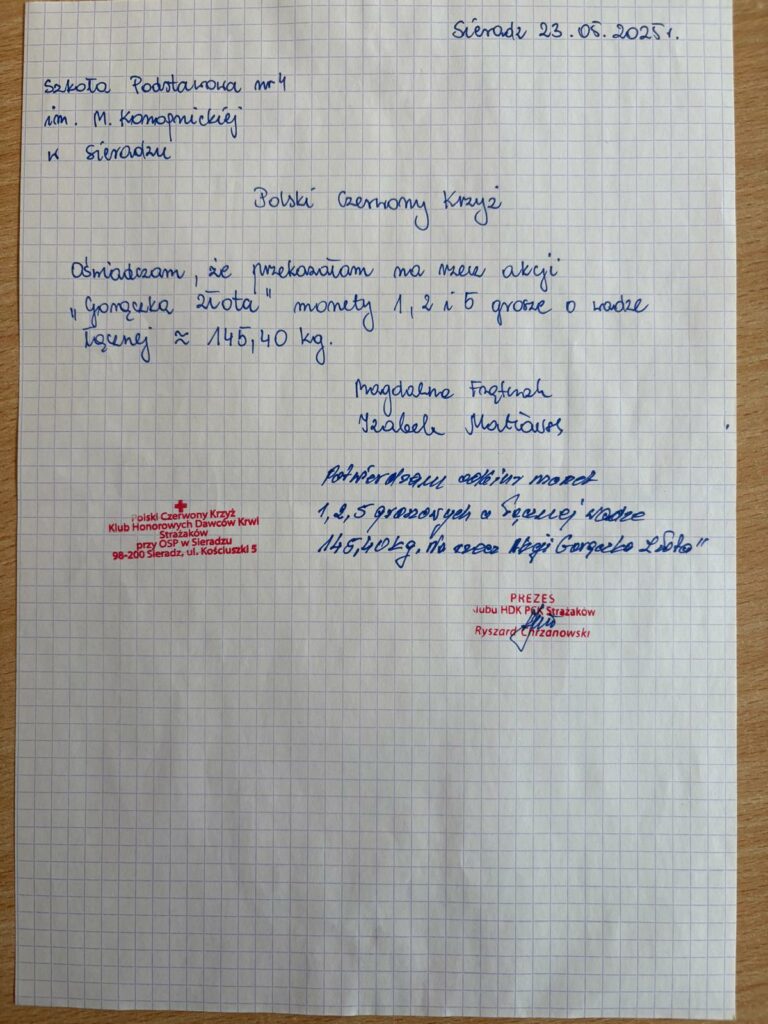 Sieradz 23.05.2025r.
Szkoła Podstawowa nr 4
im. M. Konopnickiej
w Sieradzu
Polski Czerwony Krzyż
Oświadczam, że przekazałam na rzecz akcji
„Gorączka Złota" monety 1, 2 i 5 grosze o wadze
łącznej ≈ 145,40 kg.
Magdalena
Izabela
Potwierdzam odbiór monet
1, 2, 5 groszowych o łącznej wadze
145,40 kg. na rzecz Akcji Gorączka Złota"
Polski Czerwony Krzyż
Klub Honorowych Dawców Krwi
Strażaków
przy OSP w Sieradzu
98-200 Sieradz, ul. Kościuszki 5
PREZES
lubu HDK PCK Strażaków
Ryszard Chrzanowski